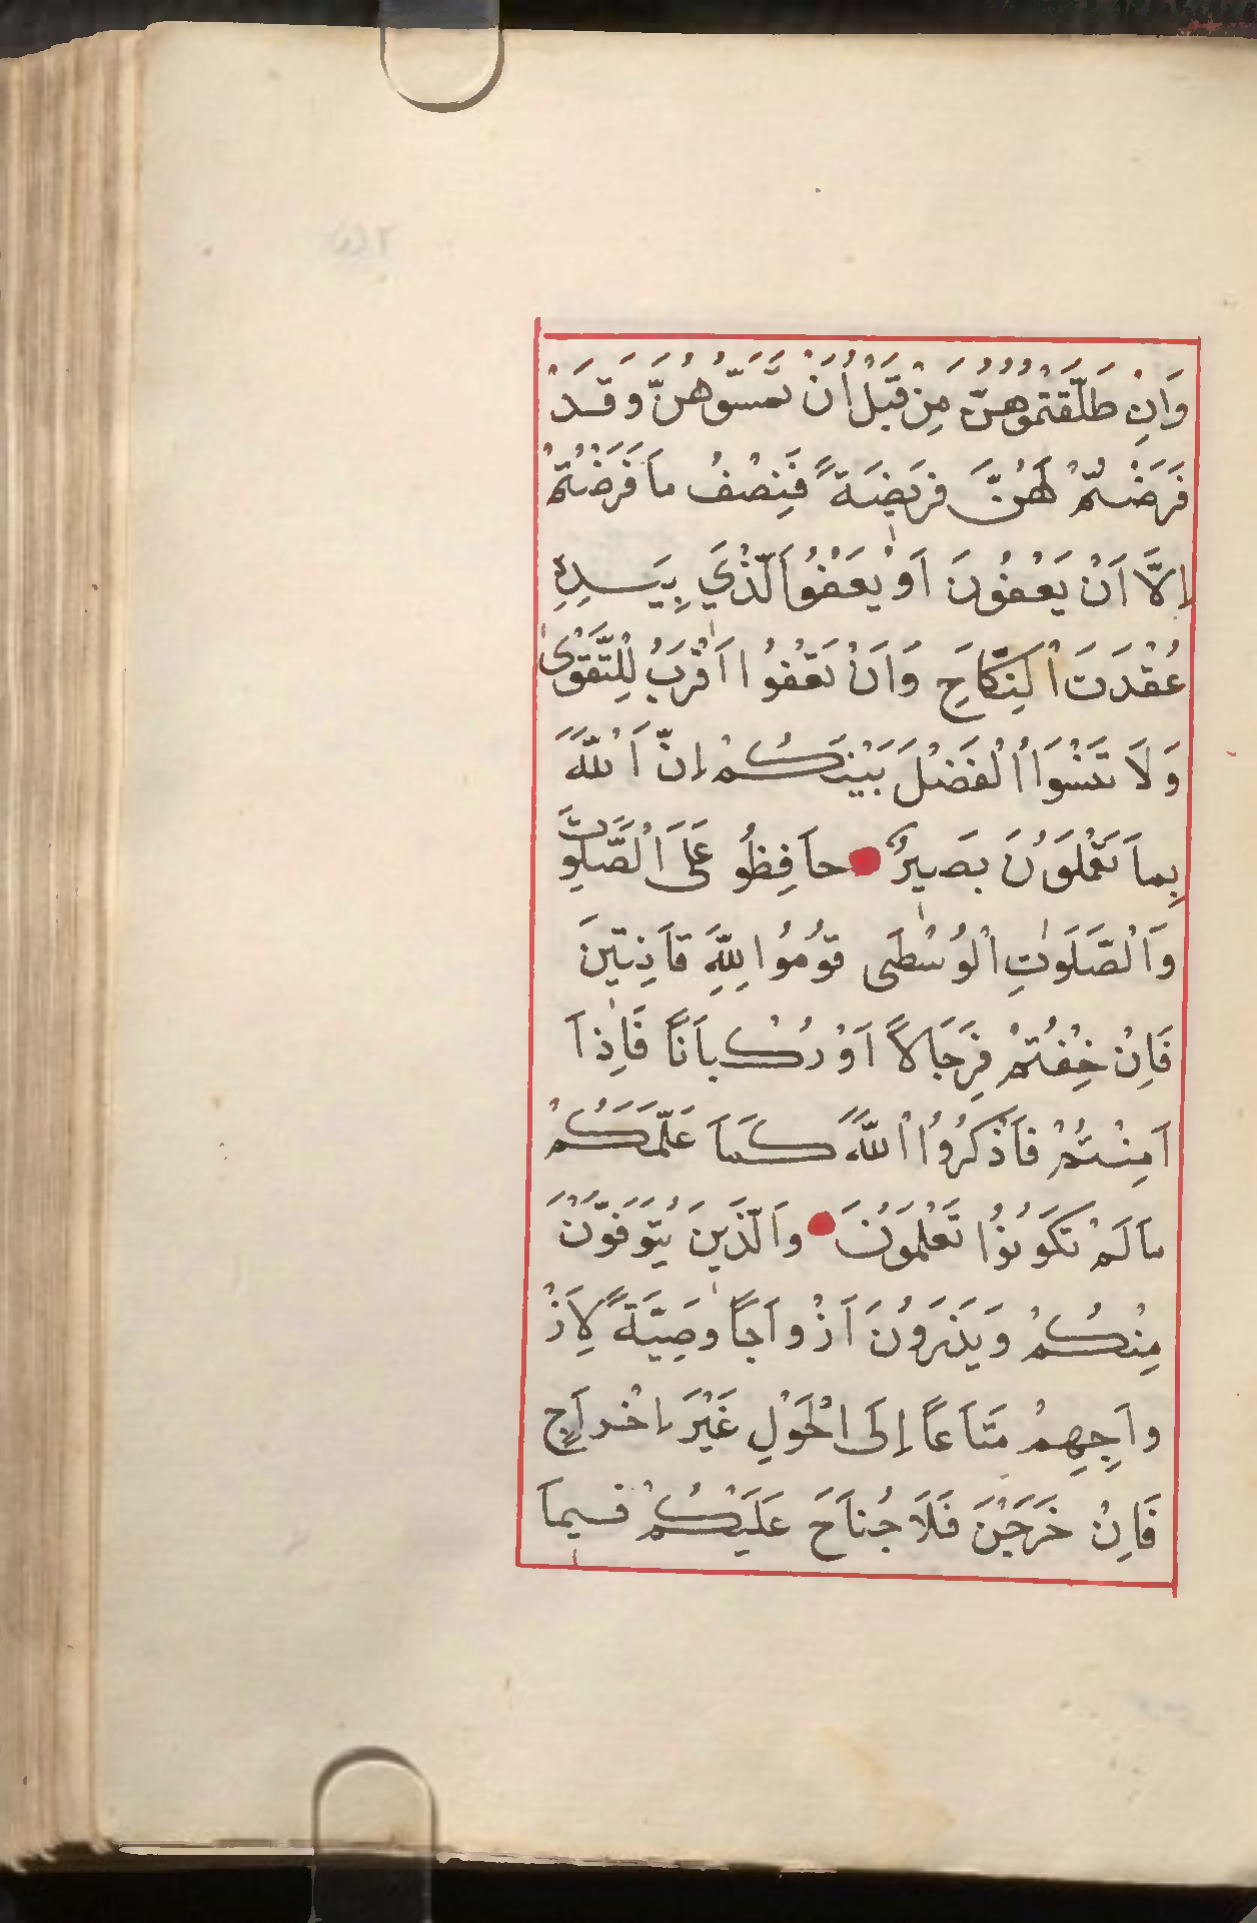 وَاِنْ طَلَّقْتُمُوهُنَّ مِنْ قَبْلِ اَنْ تَمَسُّوهُنَّ وَقَدْ
فَرَضْتُمْ لَهُنَّ فَرِيضَةً فَنِصْفُ مَا فَرَضْتُمْ
اِلَّا اَنْ يَعْفُونَ اَوْ يَعْفُوَا الَّذِي بِيَدِهِ
عُقْدَتَ النِّكَاحِ وَاَنْ تَعْفُوا اَقْرَبُ لِلتَّقْوٰى
وَلَا تَنْسَوُا الْفَضْلَ بَيْنَكُمْ اِنَّ اللّٰهَ
بِمَا تَعْمَلُونَ بَصِيرٌ حَافِظُو عَلَى الصَّلَوٰتِ
وَالصَّلَوٰتِ الْوُسْطٰى قُومُوا لِلّٰهِ قَانِتِينَ
فَاِنْ خِفْتُمْ فَرِجَالًا اَوْ رُكْبَانًا فَاِذَا
اَمِنْتُمْ فَاذْكُرُوا اللّٰهَ كَمَا عَلَّمَكُمْ
مَا لَمْ تَكُونُوا تَعْلَمُونَ وَالَّذِينَ يُتَوَفَّوْنَ
مِنْكُمْ وَيَذَرُونَ اَزْوَاجًا وَصِيَّةً لِاَزْ
وَاجِهِمْ مَتَاعًا اِلَى الْحَوْلِ غَيْرَ اِخْرَاجٍ
فَاِنْ خَرَجْنَ فَلَا جُنَاحَ عَلَيْكُمْ فِيمَا